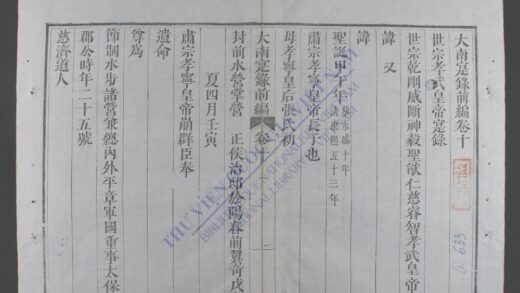 大南寔錄前編卷十
世宗孝武皇帝寔錄
世宗乾剛威斷神毅聖猷仁慈睿智孝武皇帝
諱　又
諱
聖誕甲午年黎永盛十年清康熙五十三年
肅宗孝寧皇帝長子也
母孝寧皇后張氏初
大南寔錄前編　卷十　一
封前水營掌營　正侯治邸於陽春前翼奇戌
夏四月壬寅
肅宗孝寧皇帝崩群臣奉
遺命
尊為
節制水步諸營兼總內外平章軍國重事太保
郡公時年二十五號
慈濟道人
THƯ VIỆN QUỐC GIA
BIBLIOTHÈQUE NATIONALE
NATIONAL LIBRARY
R. 633